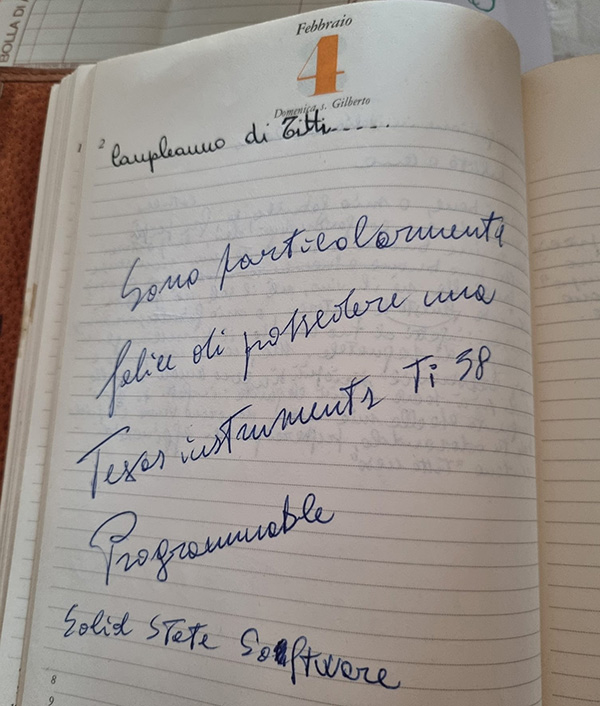 BOLLA DI
Febbraio
4
Domenica s. Gilberto
1 2
Compleanno di Titti.....
Sono particolarmente
felice di possedere una
Texas instruments Ti 58
Programmable
Solid State Software
8
9